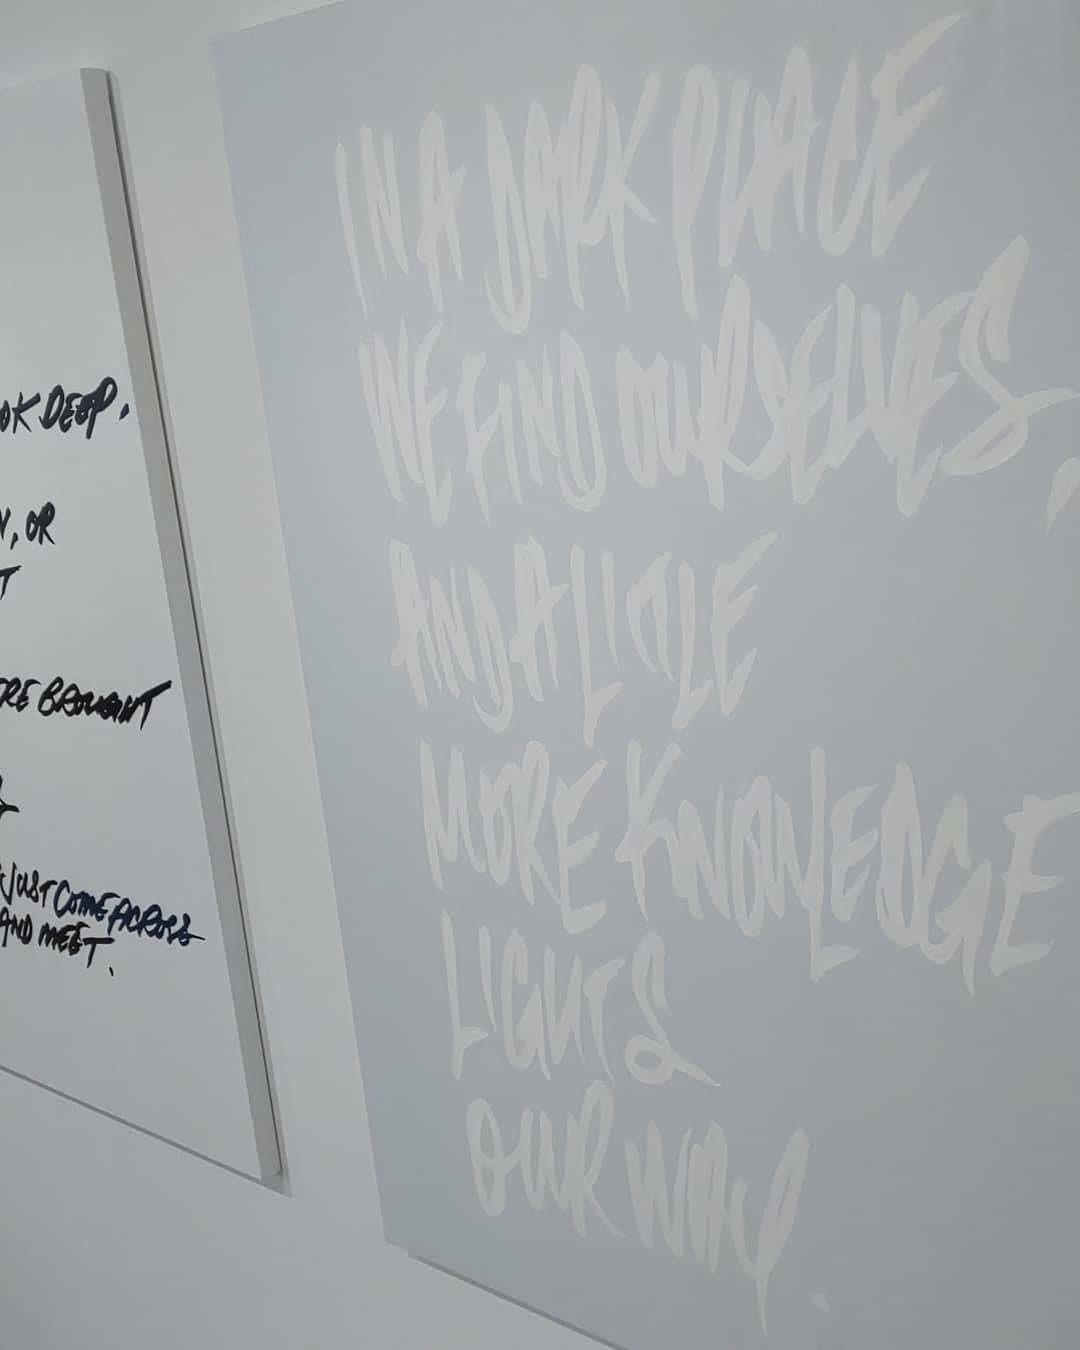 OK DEEP.
, OR
T
RE BROUGHT
JUST COME ACROSS
AND MEET.
IN A DARK PLACE
WE FIND OURSELVES,
AND A LITTLE
MORE KNOWLEDGE
LIGHTS
OUR WAY.